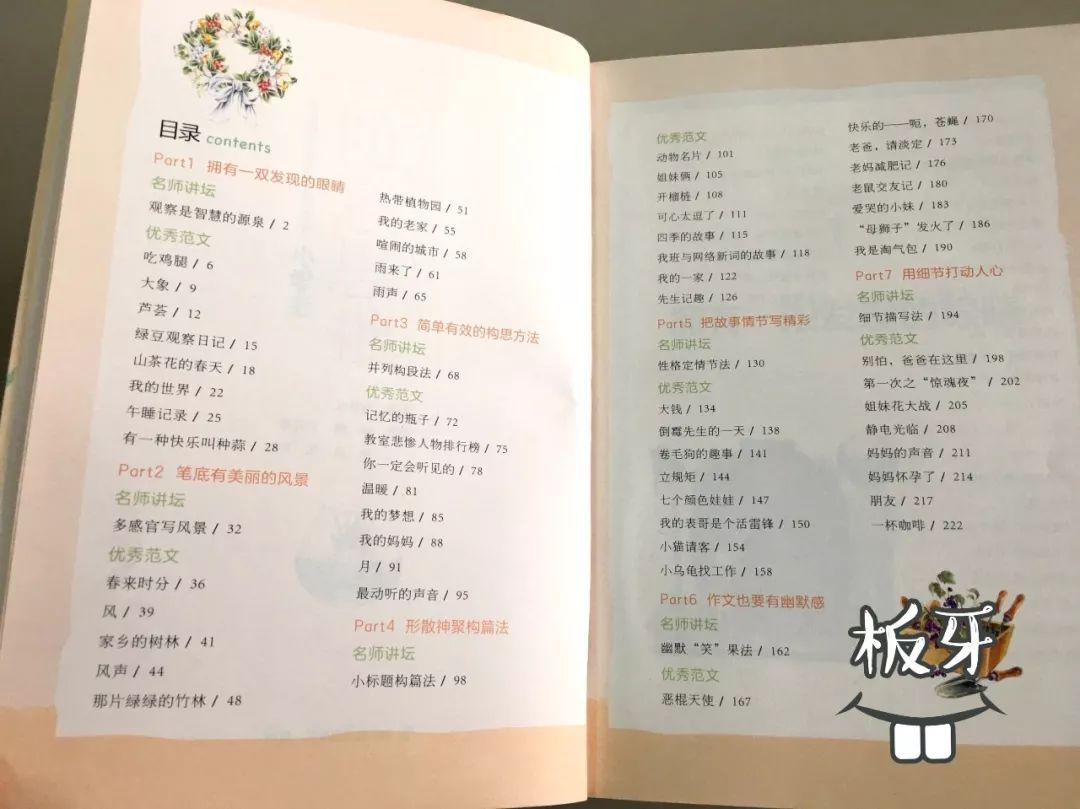 目录 contents
Part1 拥有一双发现的眼睛
名师讲坛
观察是智慧的源泉 / 2
优秀范文
吃鸡腿 / 6
大象 / 9
芦荟 / 12
绿豆观察日记 / 15
山茶花的春天 / 18
我的世界 / 22
午睡记录 / 25
有一种快乐叫种蒜 / 28
Part2 笔底有美丽的风景
名师讲坛
多感官写风景 / 32
优秀范文
春来时分 / 36
风 / 39
家乡的树林 / 41
风声 / 44
那片绿绿的竹林 / 48
热带植物园 / 51
我的老家 / 55
喧闹的城市 / 58
雨来了 / 61
雨声 / 65
Part3 简单有效的构思方法
名师讲坛
并列构段法 / 68
优秀范文
记忆的瓶子 / 72
教室悲惨人物排行榜 / 75
你一定会听见的 / 78
温暖 / 81
我的梦想 / 85
我的妈妈 / 88
月 / 91
最动听的声音 / 95
Part4 形散神聚构篇法
名师讲坛
小标题构篇法 / 98
优秀范文
动物名片 / 101
姐妹俩 / 105
开榴梿 / 108
可心太逗了 / 111
四季的故事 / 115
我班与网络新词的故事 / 118
我的一家 / 122
先生记趣 / 126
Part5 把故事情节写精彩
名师讲坛
性格定情节法 / 130
优秀范文
大钱 / 134
倒霉先生的一天 / 138
卷毛狗的趣事 / 141
立规矩 / 144
七个颜色娃娃 / 147
我的表哥是个活雷锋 / 150
小猫请客 / 154
小乌龟找工作 / 158
Part6 作文也要有幽默感
名师讲坛
幽默“笑”果法 / 162
优秀范文
恶棍天使 / 167
快乐的——呃，苍蝇 / 170
老爸，请淡定 / 173
老妈减肥记 / 176
老鼠交友记 / 180
爱哭的小妹 / 183
“母狮子”发火了 / 186
我是淘气包 / 190
Part7 用细节打动人心
名师讲坛
细节描写法 / 194
优秀范文
别怕，爸爸在这里 / 198
第一次之“惊魂夜” / 202
姐妹花大战 / 205
静电光临 / 208
妈妈的声音 / 211
妈妈怀孕了 / 214
朋友 / 217
一杯咖啡 / 222
板牙